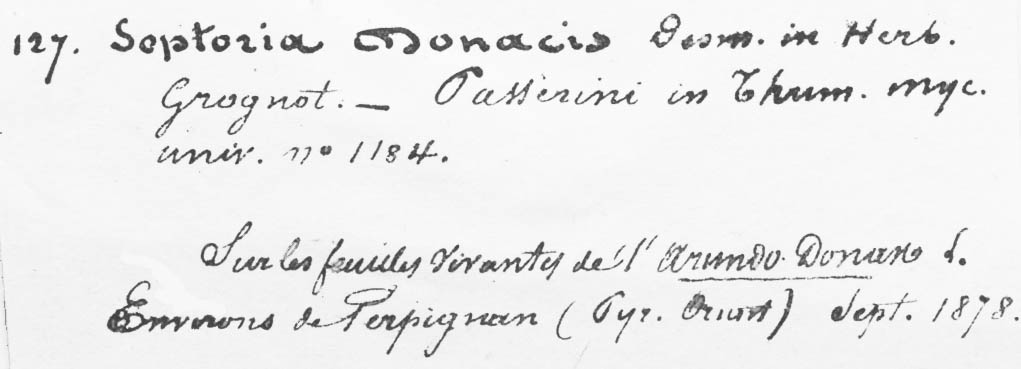 127. Septoria Donacis Desm. in Herb.
Grognot. — Passerini in Thum. myc.
univ. nº 1184.
Sur les feuilles vivantes de l'Arundo Donax L.
Environs de Perpignan (Pyr. Orient) Sept. 1878.